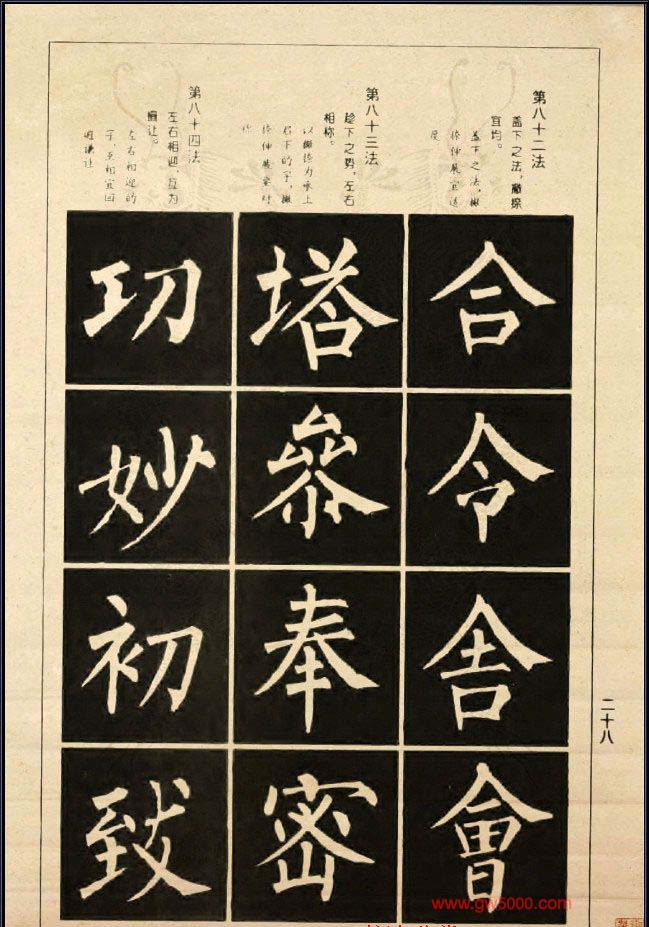 第八十二法
盖下之法，撇捺
宜均。
盖下之法，撇
捺伸展宜适
度
合
令
舍
會
第八十三法
趁下之势，左右
相称。
以撇捺为承上
启下的字，撇
捺伸展要对
称
塔
叅
奉
密
第八十四法
左右相迎，互为
揖让。
左右相迎的
字，互相宜回
避谦让
功
妙
初
致
二十八
www.gw5000.com